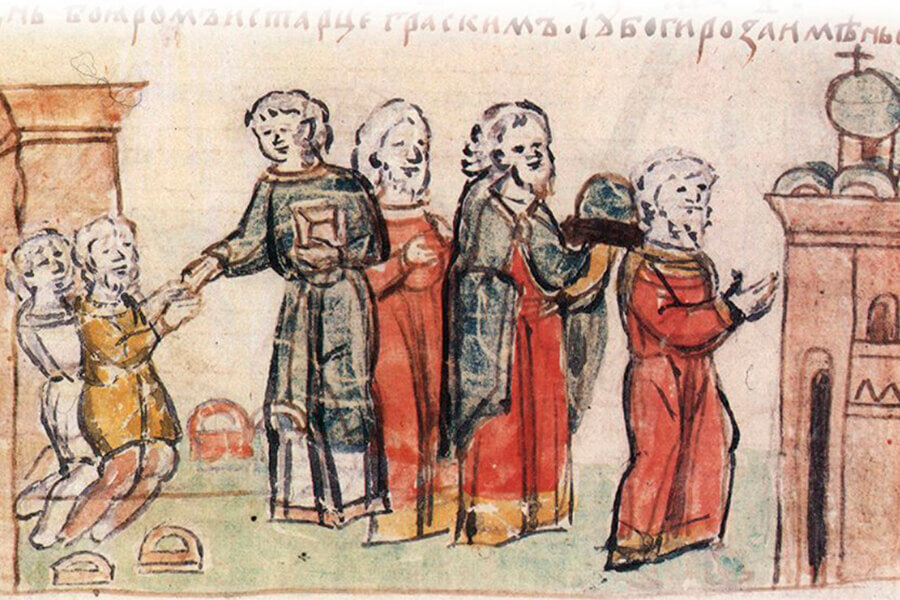 нь боѧромъ и старце граскимъ. і ѹбоги розда имѣнь